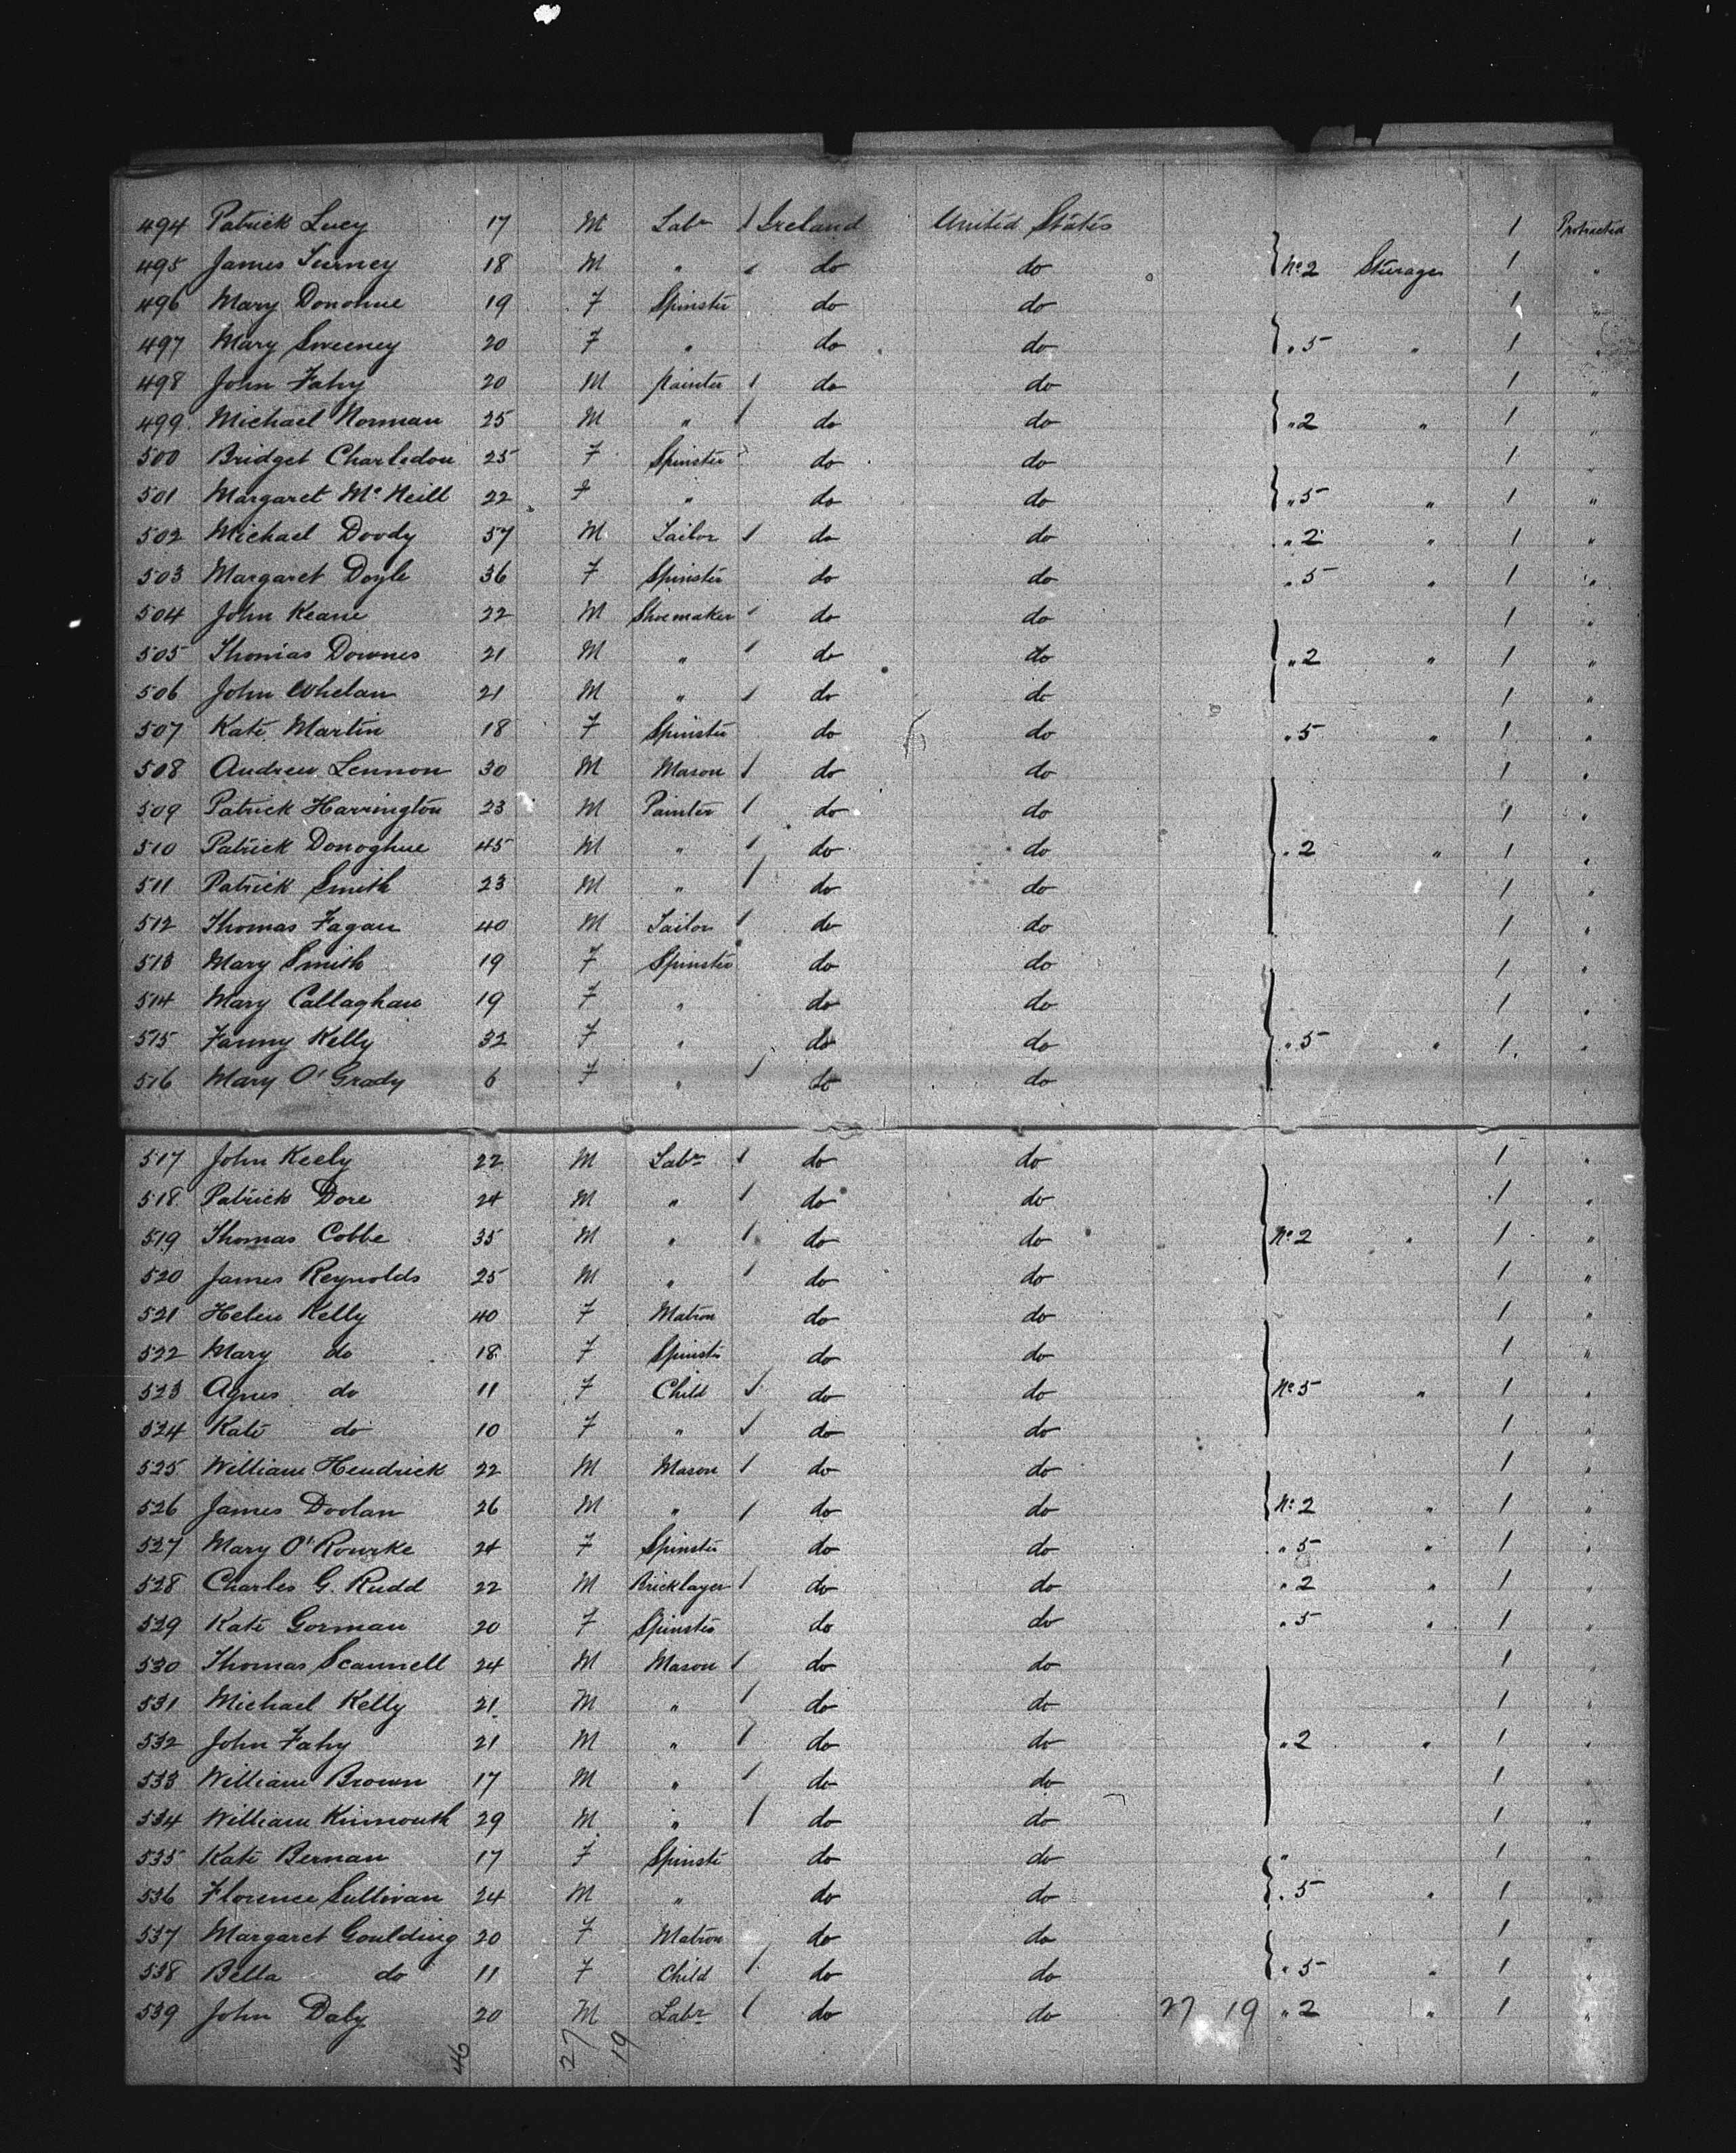 494 Patrick Lucy 17 M Labr 1 Ireland United States 1 Protracted
495 James Turney 18 M " do do } No 2 Steerage 1 "
496 Mary Donohue 19 F Spinster do do 1 "
497 Mary Sweeney 20 F " do do } " 5 " 1 "
498 John Fahy 20 M Painter 1 do do 1 "
499 Michael Norman 25 M " 1 do do } " 2 " 1 "
500 Bridget Charledon 25 F Spinster do do 1 "
501 Margaret McNeill 22 F " do do } " 5 " 1 "
502 Michael Doody 57 M Tailor 1 do do " 2 " 1 "
503 Margaret Doyle 36 F Spinster do do " 5 " 1 "
504 John Keane 22 M Shoemaker 1 do do 1 "
505 Thomas Downes 21 M " 1 do do } " 2 " 1 "
506 John Whelan 21 M " 1 do do 1 "
507 Kate Martin 18 F Spinster do do " 5 " 1 "
508 Andrew Lennon 30 M Mason 1 do do 1 "
509 Patrick Harrington 23 M Painter 1 do do 1 "
510 Patrick Donoghue 45 M " 1 do do } " 2 " 1 "
511 Patrick Smith 23 M " 1 do do 1 "
512 Thomas Fagan 40 M Tailor 1 do do 1 "
513 Mary Smith 19 F Spinster do do 1 "
514 Mary Callaghan 19 F " do do 1 "
515 Fanny Kelly 32 F " do do } " 5 " 1 "
516 Mary O'Grady 6 F " 1 do do
517 John Keely 22 M Labr 1 do do 1 "
518 Patrick Dore 24 M " 1 do do 1 "
519 Thomas Cobbe 35 M " 1 do do } No 2 " 1 "
520 James Reynolds 25 M " 1 do do 1 "
521 Helen Kelly 40 F Matron do do 1 "
522 Mary do 18 F Spinstr do do 1 "
523 Agnes do 11 F Child 1 do do } No 5 " 1 "
524 Kate do 10 F " 1 do do 1 "
525 William Hendrick 22 M Mason 1 do do 1 "
526 James Doolan 26 M " 1 do do } No 2 " 1 "
527 Mary O'Rourke 24 F Spinster do do " 5 " 1 "
528 Charles G. Rudd 22 M Bricklayer 1 do do " 2 " 1 "
529 Kate Gorman 20 F Spinster do do " 5 " 1 "
530 Thomas Scannell 24 M Mason 1 do do 1 "
531 Michael Kelly 21 M " 1 do do 1 "
532 John Fahy 21 M " 1 do do } " 2 " 1 "
533 William Brown 17 M " 1 do do 1 "
534 William Kinmouth 29 M " 1 do do 1 "
535 Kate Bernan 17 F Spinste do do " 1 "
536 Florence Sullivan 24 M " do do } " 5 " 1 "
537 Margaret Goulding 20 F Matron do do 1 "
538 Bella do 11 F Child 1 do do } " 5 " 1 "
539 John Daly 20 M Labr 1 do do 27 19 " 2 " 1 "
46 27 19